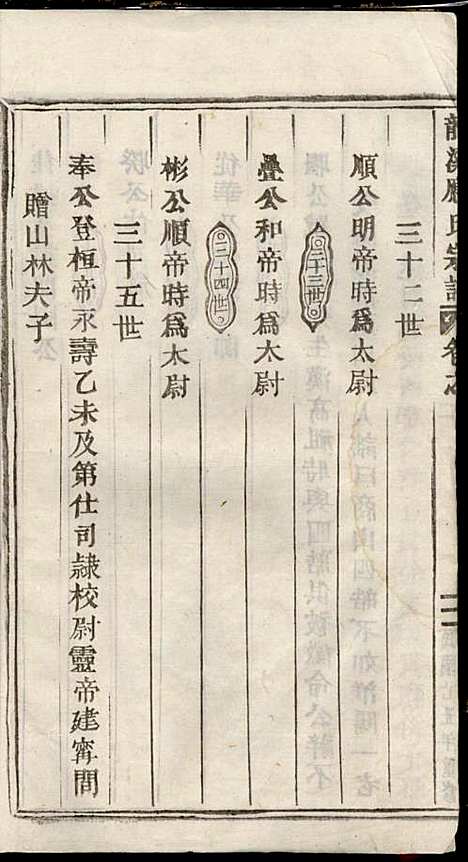 三十二世
順公明帝時爲太尉
三十三世
疊公和帝時爲太尉
三十四世
彬公順帝時爲太尉
三十五世
奉公登桓帝永壽乙未及第仕司隷校尉靈帝建寧間
贈山林夫子